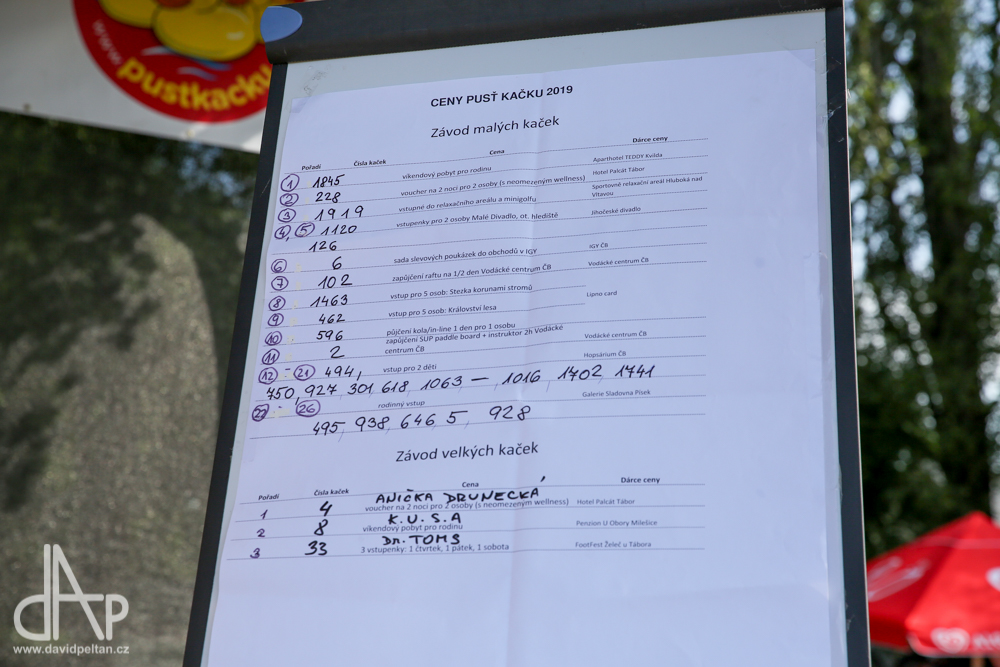 www
pustkacku
CENY PUSŤ KAČKU 2019
Závod malých kaček
Pořadí Čísla kaček Cena Dárce ceny
1 1845 víkendový pobyt pro rodinu Aparthotel TEDDY Kvilda
2 228 voucher na 2 noci pro 2 osoby (s neomezeným wellness) Hotel Palcát Tábor
3 1919 vstupné do relaxačního areálu a minigolfu Sportovně relaxační areál Hluboká nad Vltavou
4, 5 1120 vstupenky pro 2 osoby Malé Divadlo, ot. hlediště Jihočeské divadlo
126
6 6 sada slevových poukázek do obchodů v IGY IGY ČB
7 102 zapůjčení raftu na 1/2 den Vodácké centrum ČB Vodácké centrum ČB
8 1463 vstup pro 5 osob: Stezka korunami stromů Lipno card
9 462 vstup pro 5 osob: Království lesa
10 596 půjčení kola/in-line 1 den pro 1 osobu
11 2 zapůjčení SUP paddle board + instruktor 2h Vodácké centrum ČB Vodácké centrum ČB
12 - 21 494, vstup pro 2 děti Hopsárium ČB
750, 927, 301, 618, 1063 — , 1016, 1702, 1741
22 - 26 rodinný vstup Galerie Sladovna Písek
495, 938, 646, 5, 928
Závod velkých kaček
Pořadí Čísla kaček Cena Dárce ceny
ANIČKA DRUNECKÁ
1 4 voucher na 2 noci pro 2 osoby (s neomezeným wellness) Hotel Palcát Tábor
K.U.S.A
2 8 víkendový pobyt pro rodinu Penzion U Obory Milešice
Dr. TOMS
3 33 3 vstupenky: 1 čtvrtek, 1 pátek, 1 sobota FootFest Želeč u Tábora
dAp
www.davidpeltan.cz